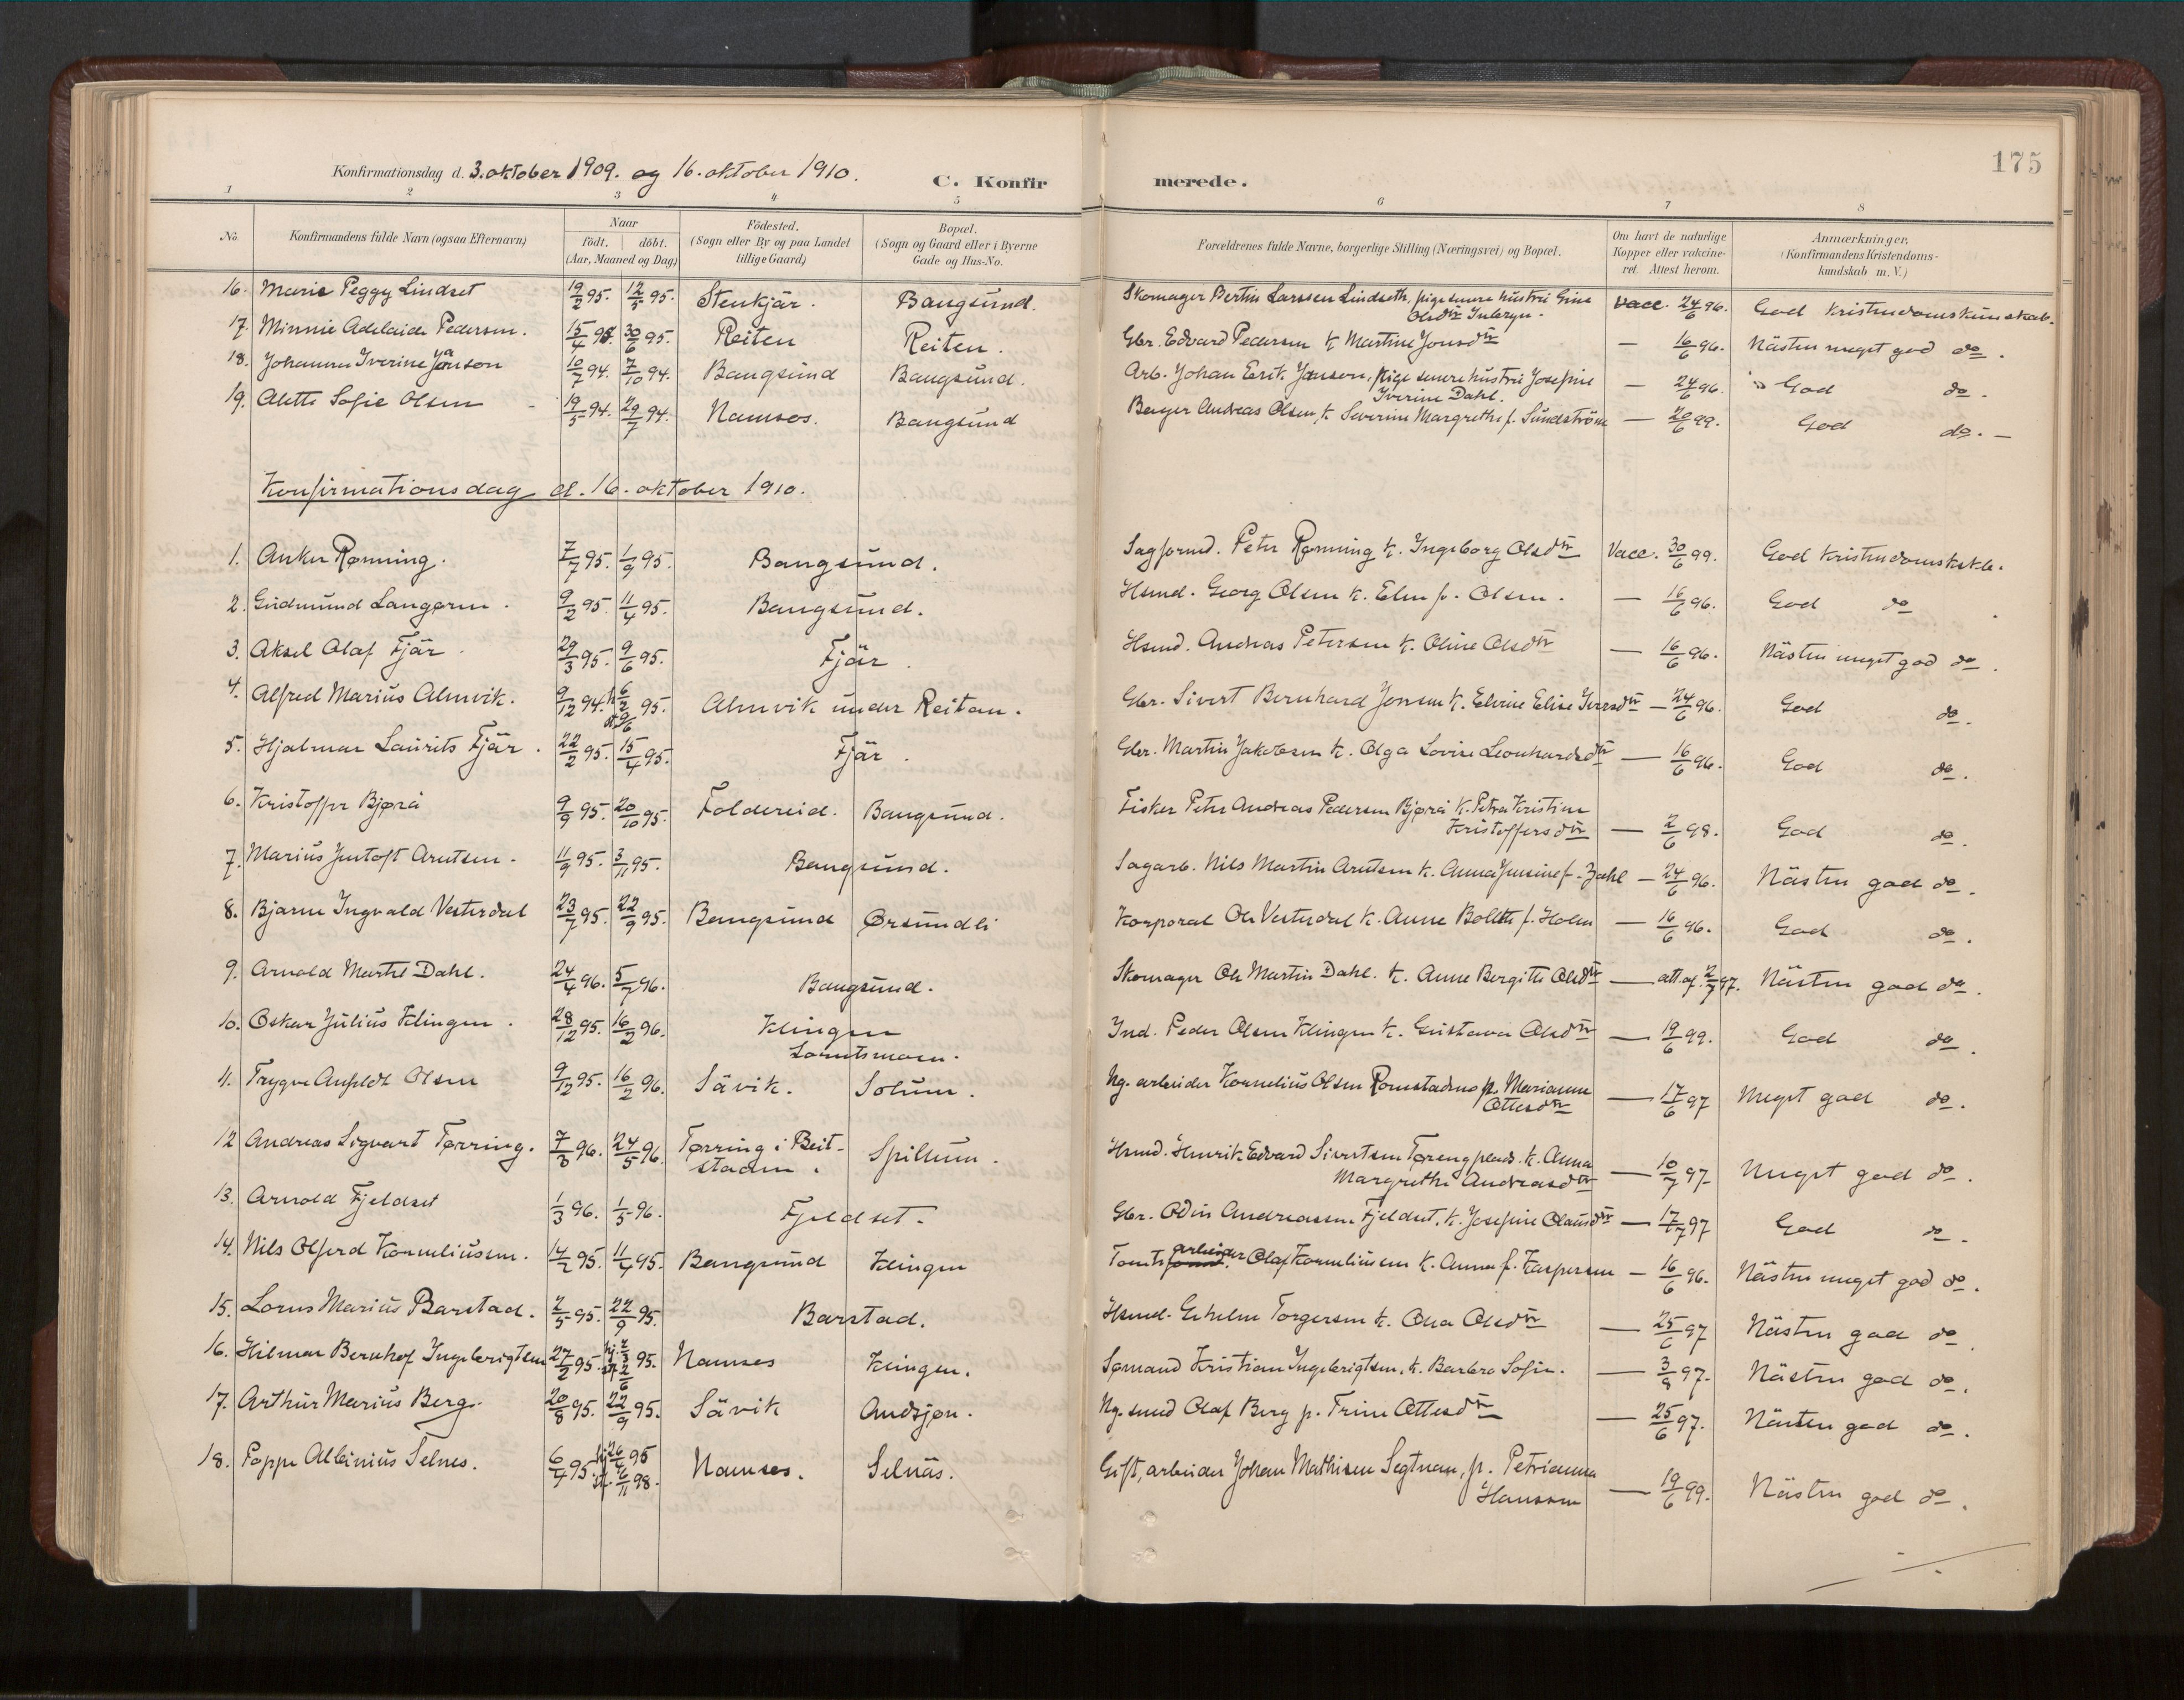 175
Konfirmationsdag d. 3. oktober 1909. og 16. oktober 1910.
C. Konfirmerede.
1 2 3 4 5 6 7 8
No.
Konfirmandens fulde Navn (ogsaa Efternavn)
Naar
födt. döbt.
(Aar, Maaned og Dag)
Födested.
(Sogn eller By og paa Landet
tillige Gaard)
Bopæl.
(Sogn og Gaard eller i Byerne
Gade og Hus-No.
Forældrenes fulde Navne, borgerlige Stilling (Næringsvei) og Bopæl.
Om havt de naturlige
Kopper eller vakcine-
ret. Attest herom.
Anmærkninger.
(Konfirmandens Kristendoms-
kundskab m. V.)
16. Marie Peggy Lindset 19/2 95. 12/5 95. Stenkjär. Bangsund. Skomager Bertin Larssen Lindseth, pige senere hustru Gine
Olsdtr Inderyn. vacc. 24/6 96. God kristendomskundskab.
17. Minnie Adelaide Pedersen. 15/4 95. 30/6 95. Reiten Reiten. Gbr. Edvard Pedersen k. Martine Jonsdtr — 16/6 96. Nästen meget god do.
18. Johanna Iverine Janson 10/7 94. 7/10 94. Bangsund Bangsund. Arb. Johan Erik Janson, pige senere hustru Josefine
Iverine Dahl. — 24/6 96. God do.
19. Alette Sofie Olsen 19/5 94. 29/7 94. Namsos. Bangsund Berger Andreas Olsen, k. Severine Margrethe f. Sundström — 20/6 99. God do. —
Konfirmationsdag d. 16. oktober 1910.
1. Anker Rønning. 7/7 95. 1/9 95. Bangsund. Sagformd. Peter Rønning k. Ingeborg Olsdtr Vacc. 30/6 99. God kristendomskskb.
2. Gudmund Langørn. 9/2 95. 11/4 95. Bangsund. Hsmd. Georg Olsen k. Elen f. Olsen. — 16/6 96. God do.
3. Aksel Olaf Fjär. 29/3 95. 9/6 95. Fjär. Hsmd. Andreas Petersen k. Oline Olsdtr — 16/6 96. Nästen meget god do.
4. Alfred Marius Almvik. 9/12 94. h. 6/2 95. st. 9/6 Almvik under Reitan. Gbr. Sivert Bernhard Jonsen k. Elvine Elise Iversdtr — 24/6 96. God do.
5. Hjalmar Laurits Fjär. 22/2 95. 15/4 95. Fjär. Gbr. Martin Jakobsen k. Olga Lovise Leonhardsdtr — 16/6 96. God do.
6. Kristoffer Bjørå 9/9 95. 20/10 95. Foldereid. Bangsund. Fisker Peter Andreas Pedersen Bjørå k. Petra Kristine
Kristoffersdtr — 2/6 98. God do.
7. Marius Jentoft Arntsen. 11/9 95. 3/11 95. Bangsund. Sagarb. Nils Martin Arntsen k. Anna Jensine f. Zahl — 24/6 96. Nästen god do.
8. Bjarne Ingvald Vesterdal 23/7 95. 22/9 95. Bangsund Ørsundli Korporal Ole Vesterdal k. Anne Bolette f. Holm — 16/6 96. God do.
9. Arnold Martel Dahl. 24/4 96. 5/7 96. Bangsund. Skomager Ole Martin Dahl. k. Anne Bergitte Olsdtr — att. af. 2/7 97. Nästen god do.
10. Oskar Julius Klingen. 28/12 95. 16/2 96. Klingen
Lorntsmoen. Ind. Peder Olsen Klingen k. Gustava Olsdtr — 19/6 99. God do.
11. Trygve Anfeldt Olsen 9/12 95. 16/2 96. Sävik. Solum. Ug. arbeider Kornelius Olsen Romstadmo p. Marianne
Ottesdtr — 17/6 97 Meget god do.
12 Andreas Sigvart Tørring. 7/3 96. 24/5 96. Tørring i Beit-
staden. Spillum. Hsmd. Henrik Edvard Sivertsen Tørengplads. k. Anna
Margrethe Andreasdtr — 10/7 97. Meget god do.
13. Arnold Fjeldset 1/3 96. 1/5 96. Fjeldset. Gbr. Odin Andreassen Fjeldset, k. Josefine Olausdtr — 17/7 97 God do.
14. Nils Olferd Korneliussen. 14/2 95. 11/4 95. Bangsund Klingen Tomtsarbeider Olaf Korneliussen k. Anna f. Kaspersen — 16/6 96. Nästen meget god do.
15. Lorns Marius Barstad. 2/5 95. 22/9 95. Barstad. Hsmd. Torgersen k. Olea Olsdtr — 25/6 97 Nästen god do
16. Hilmar Bernhof Ingebrigtsen 27/2 95. hj. 2/3 st. 2/6 95. Namsos Klingen. Sømand Kristian Ingebrigtsen, k. Barbra Sofie. — 3/8 97. Nästen god do.
17. Arthur Marius Berg. 20/8 95. 22/9 95. Sävik Audsjøn. Ug. smed Olaf Berg p. Trine Ottesdtr — 25/6 97. Nästen god do.
18. Poppe Albinius Selnes. 6/4 95. hj. 26/4 95 st. 6/11 98. Namsos. Selnäs. Gift, arbeider Johan Mathisen Segtnan, p. Petrianna
Hanssen — 19/6 99. Nästen god do.